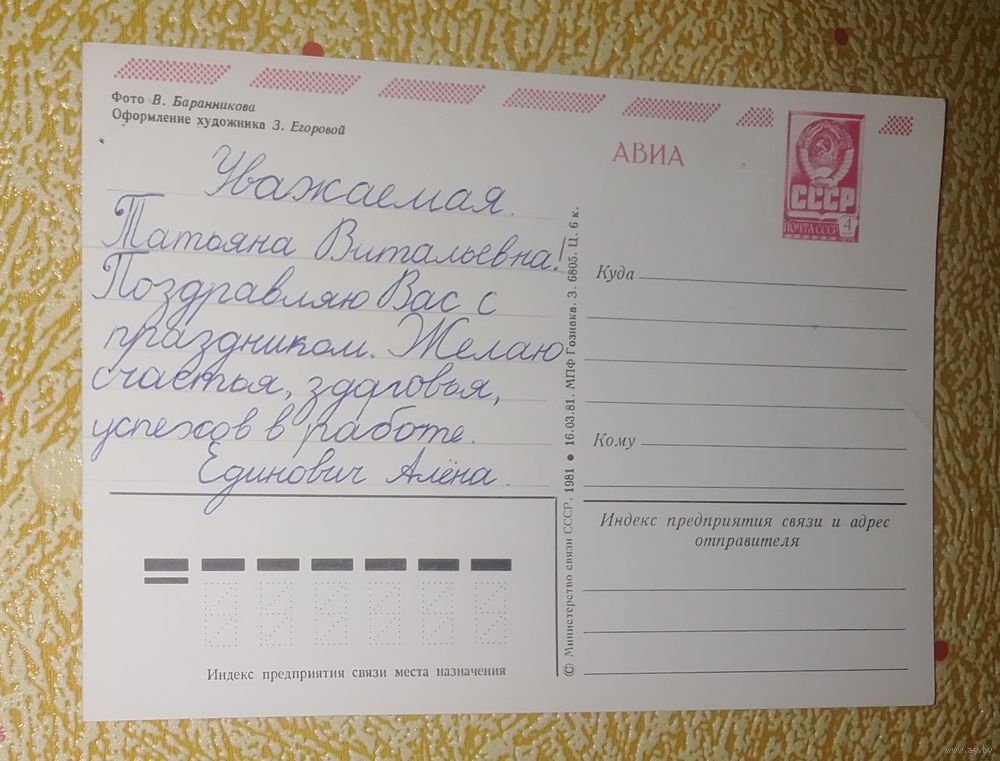 Фото В. Баранникова
Оформление художника З. Егоровой
Уважаемая.
Татьяна Витальевна!
Поздравляю Вас с
праздником. Желаю
счастья, здоровья,
успехов в работе.
Единович Алёна.
Индекс предприятия связи места назначения
© Министерство связи СССР. 1981 ● 16.03.81. МПФ Гознака. З. 6805. Ц. 6 к.
АВИА
СССР
ПОЧТА СССР 4
Куда
Кому
Индекс предприятия связи и адрес
отправителя
www.ay.by